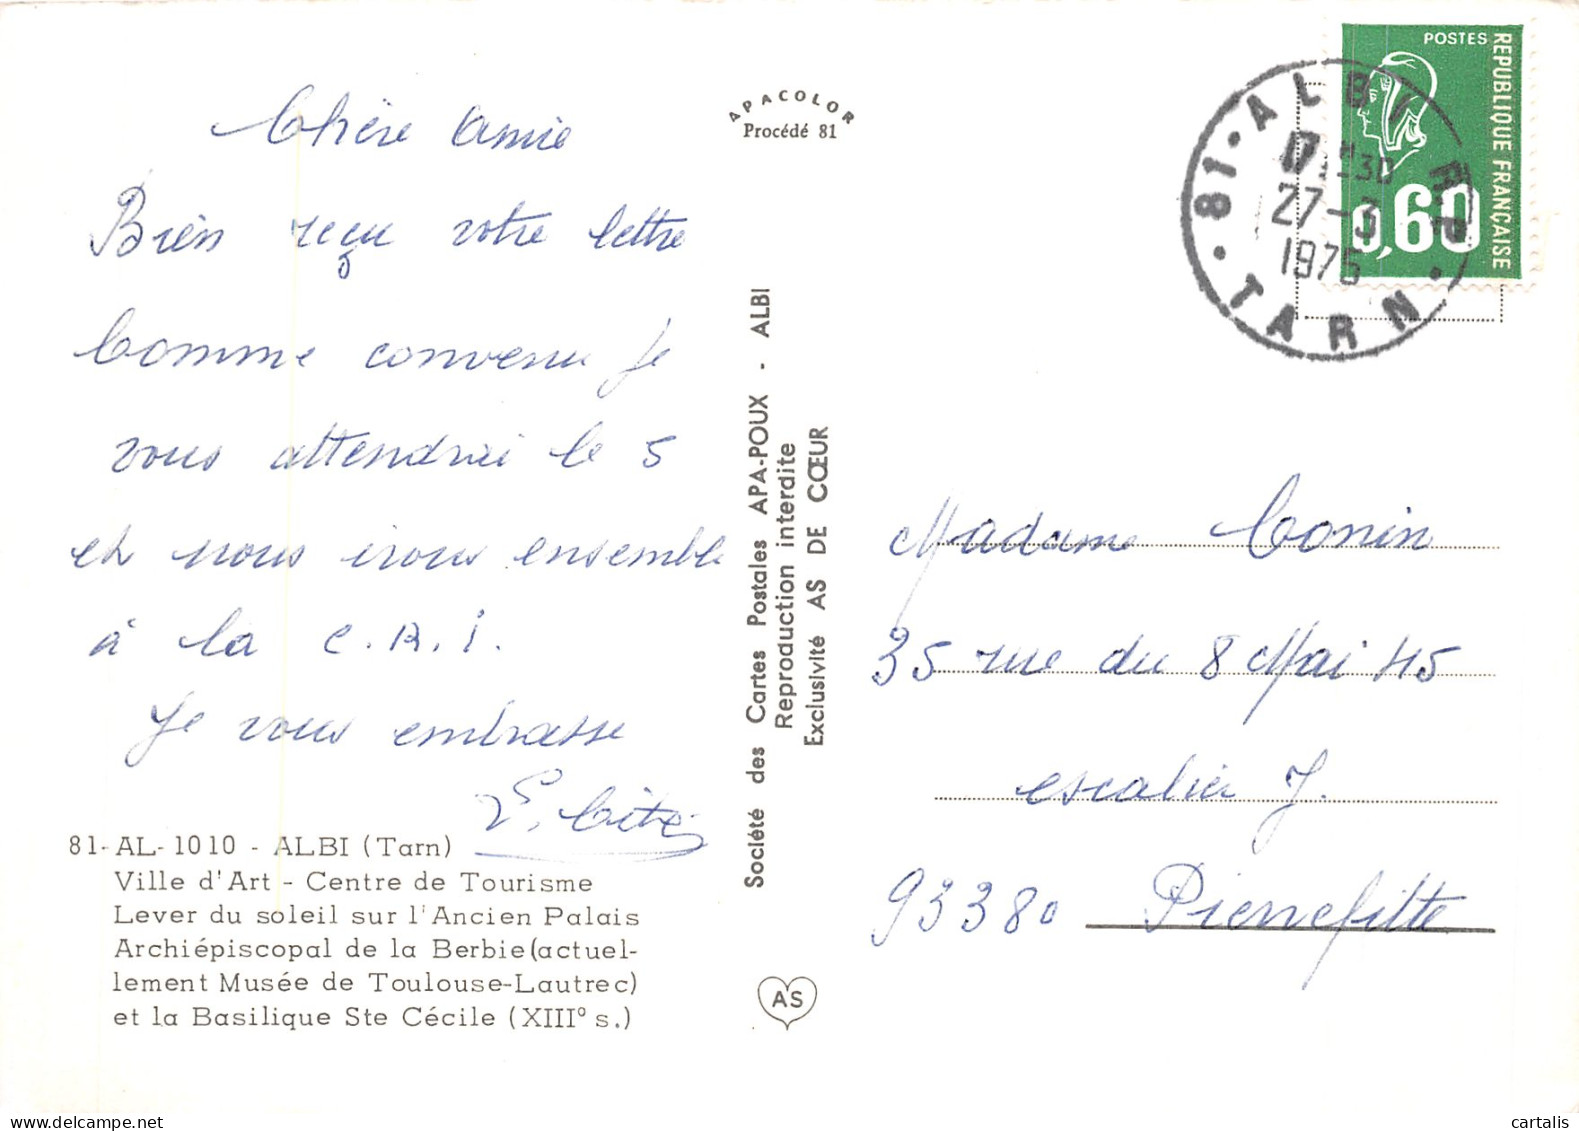 Chère Amie
Bien reçu votre lettre
Comme convenu je
vous attendrai le 5
et nous irons ensemble
à la C.R.I.
Je vous embrasse
81-AL-1010 - ALBI (Tarn)
Ville d'Art - Centre de Tourisme
Lever du soleil sur l'Ancien Palais
Archiépiscopal de la Berbie (actuel-
lement Musée de Toulouse-Lautrec)
et la Basilique Ste Cécile (XIII° s.)
APACOLOR
Procédé 81
Société des Cartes Postales APA-POUX - ALBI
Reproduction interdite
Exclusivité AS DE CŒUR
AS
POSTES
REPUBLIQUE FRANÇAISE
0,60
81 · ALBI R.P. · TARN
27-3
1975
Madame Conin
35 rue du 8 Mai 45
escalier J.
93380 Pierrefitte
delcampe.net
cartalis